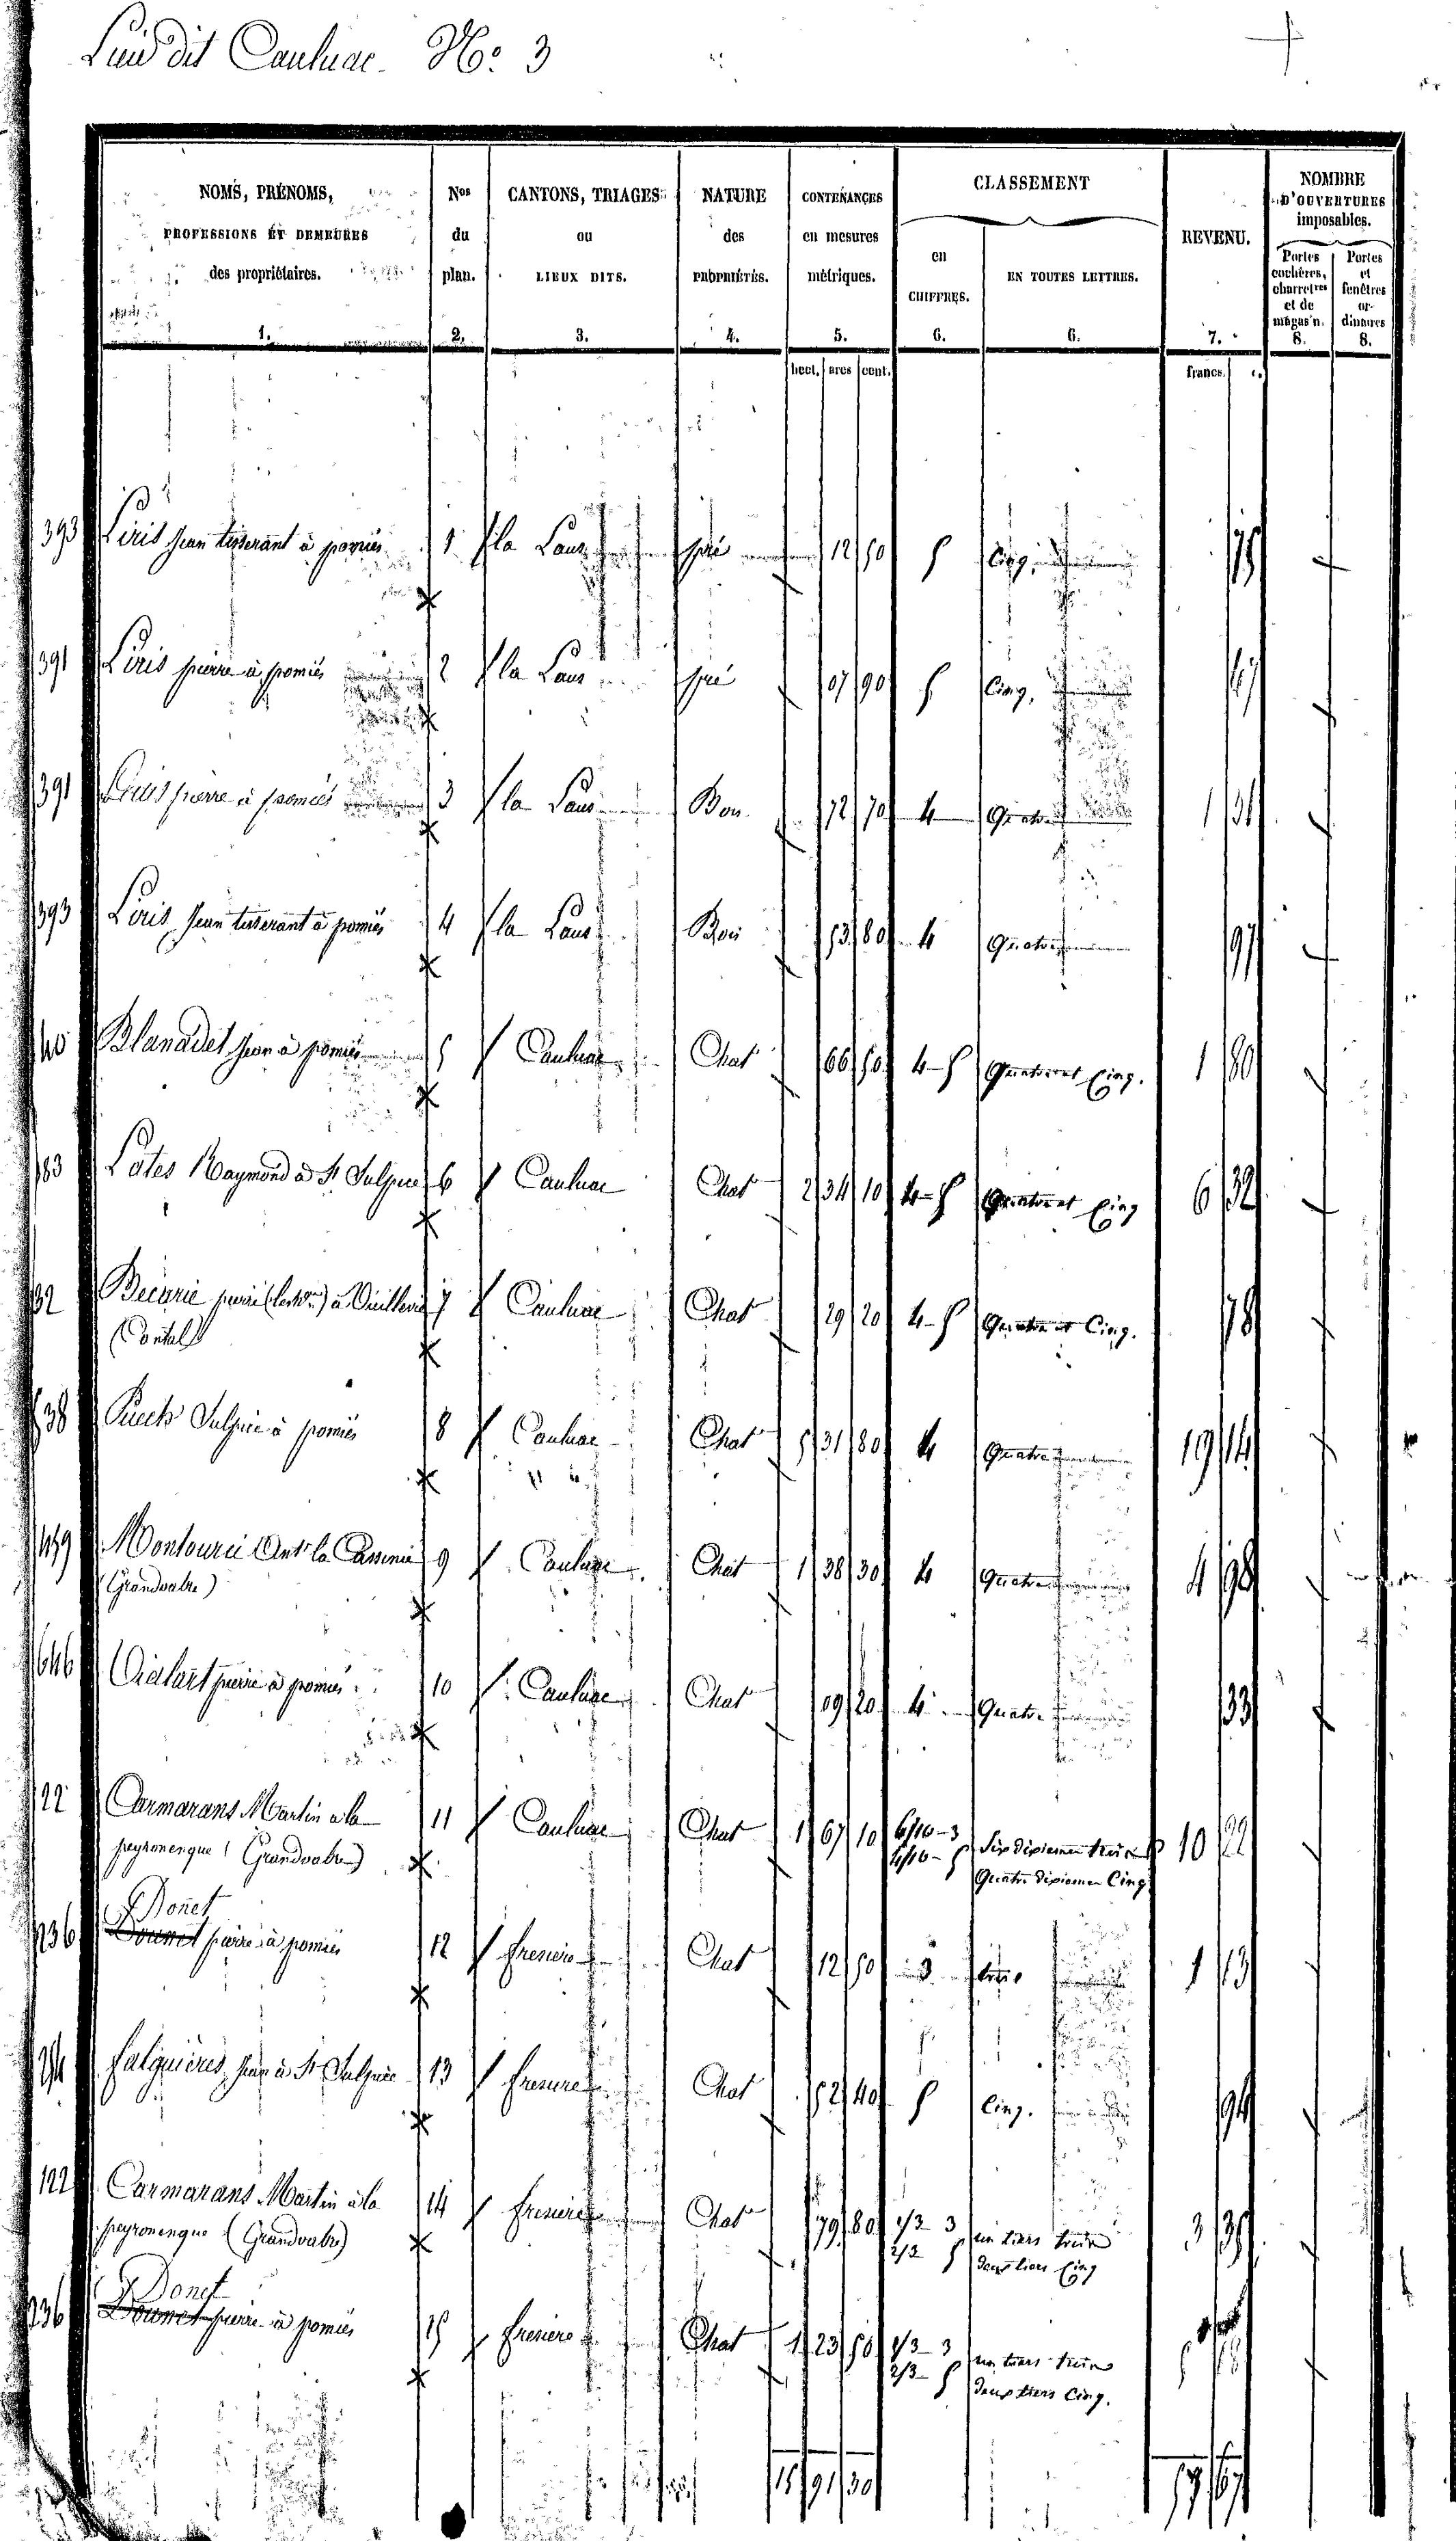 Lieu dit Cauluac N.º 3
NOMS, PRÉNOMS, PROFESSIONS ET DEMEURES des propriétaires. 1.
Nos du plan. 2.
CANTONS, TRIAGES ou LIEUX DITS. 3.
NATURE des PROPRIÉTÉS. 4.
CONTENANCES en mesures métriques. 5.
CLASSEMENT
en CHIFFRES. 6.
EN TOUTES LETTRES. 6.
REVENU. 7.
NOMBRE D'OUVERTURES imposables.
Portes cochères, charretres et de magas'n. 8.
Portes et fenêtres ordinaires 8.
hect. ares cent. francs. c.
393 Piris Jean tisserant à pomiés 1 la Laus pré 12 50 5 Cinq 75
391 Piris pierre à pomiés 2 la Laus pré 07 90 5 Cinq 47
391 Piris pierre à pomiés 3 la Laus Bois 72 70 4 Quatre 1 31
393 Piris Jean tisserant à pomiés 4 la Laus Bois 53 80 4 Quatre 97
40 Blanadet Jean à pomiés 5 Cauluac Chat 66 50 4-5 Quatre et Cinq. 1 80
Raymond à St Sulpice 6 Cauluac Chat 2 34 10 4-5 Quatre et Cinq 6 32
32 Becarie à Vieillevie 7 Cauluac Chat 29 20 4-5 Quatre et Cinq. 78
(Cantal)
Puech Sulpice à pomiés 8 Cauluac Chat 5 31 80 4 Quatre 19 14
Montourci Ant. la 9 Cauluac Chat 1 38 30 4 Quatre 4 98
(Grandvabre)
646 Vialart pierre à pomiés 10 Cauluac Chat 09 20 4 Quatre 33
122 Carmarans Martin à la 11 Cauluac Chat 1 67 10 6/10-3 Six dixiemes trois 10 22
peyronenque (Grandvabre) 4/10-5 Quatre dixiemes Cinq
Donet
236 Dounet pierre à pomiés 12 Chat 12 50 3 trois 1 13
Falguières Jean à St Sulpice 13 Chat 52 40 5 Cinq. 94
122 Carmarans Martin à la 14 Chat 79 80 1/3 3 un tiers trois 3 35
peyronenque (Grandvabre) 2/3 5 deux tiers Cinq
Donet
236 Dounet pierre à pomiés 15 Chat 1 23 50 1/3 3 un tiers trois 5
2/3 5 deux tiers Cinq.
15 91 30 57 67